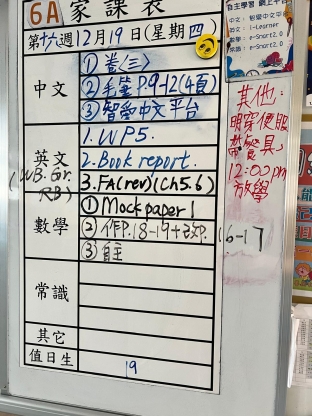 6A 家課表
第十六週12月19日(星期四)
中文
① 卷〈三〉
② 毛筆P.9-12(4頁)
③ 智愛中文平台
英文
(WB. Gr. RB)
1. WP5.
2. Book report.
3. FA(rev)(Ch5.6)
數學
① Mock paper 1
② 作P.18-19+改P.16-17
③ 自主
常識
其它
值日生
19
自主學習 網上平台
中文：智愛中文平台
英文：i-Learner
數學：e-Smart2.0
常識：e-Smart2.0
其他：
明穿便服
帶餐具
12:00pm
放學